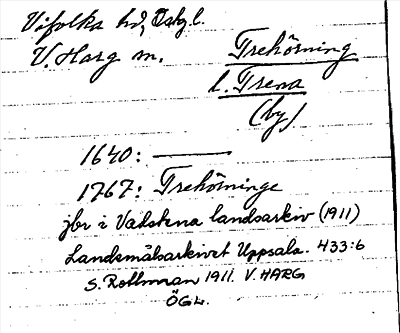 Vifolka hd, Östg.l.
V. Harg sn. Trehörning
l. Trena
(by)
1640: ———
1767: Trehörninge
jbr i Vadstena landsarkiv (1911)
Landsmålsarkivet Uppsala. 433:6
S. Rollman 1911. V. HARG
ÖGL.